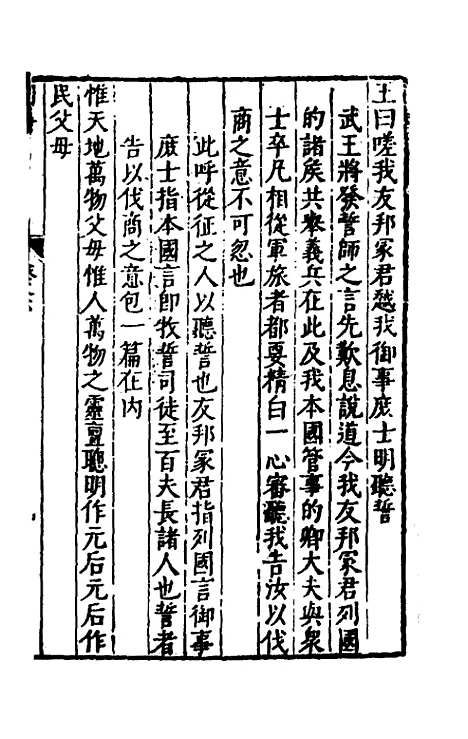 王曰嗟我友邦冢君越我御事庶士明聽誓
武王將發誓師之言先歎息說道今我友邦冢君列國
的諸矦共舉義兵在此及我本國管事的卿大夫與衆
士卒凡相從軍旅者都要精白一心審聽我告汝以伐
商之意不可忽也
此呼從征之人以聽誓也友邦冢君指列國言御事
庶士指本國言卽牧誓司徒至百夫長諸人也誓者
告以伐商之意包一篇在內
惟天地萬物父母惟人萬物之靈亶聰明作元后元后作
民父母